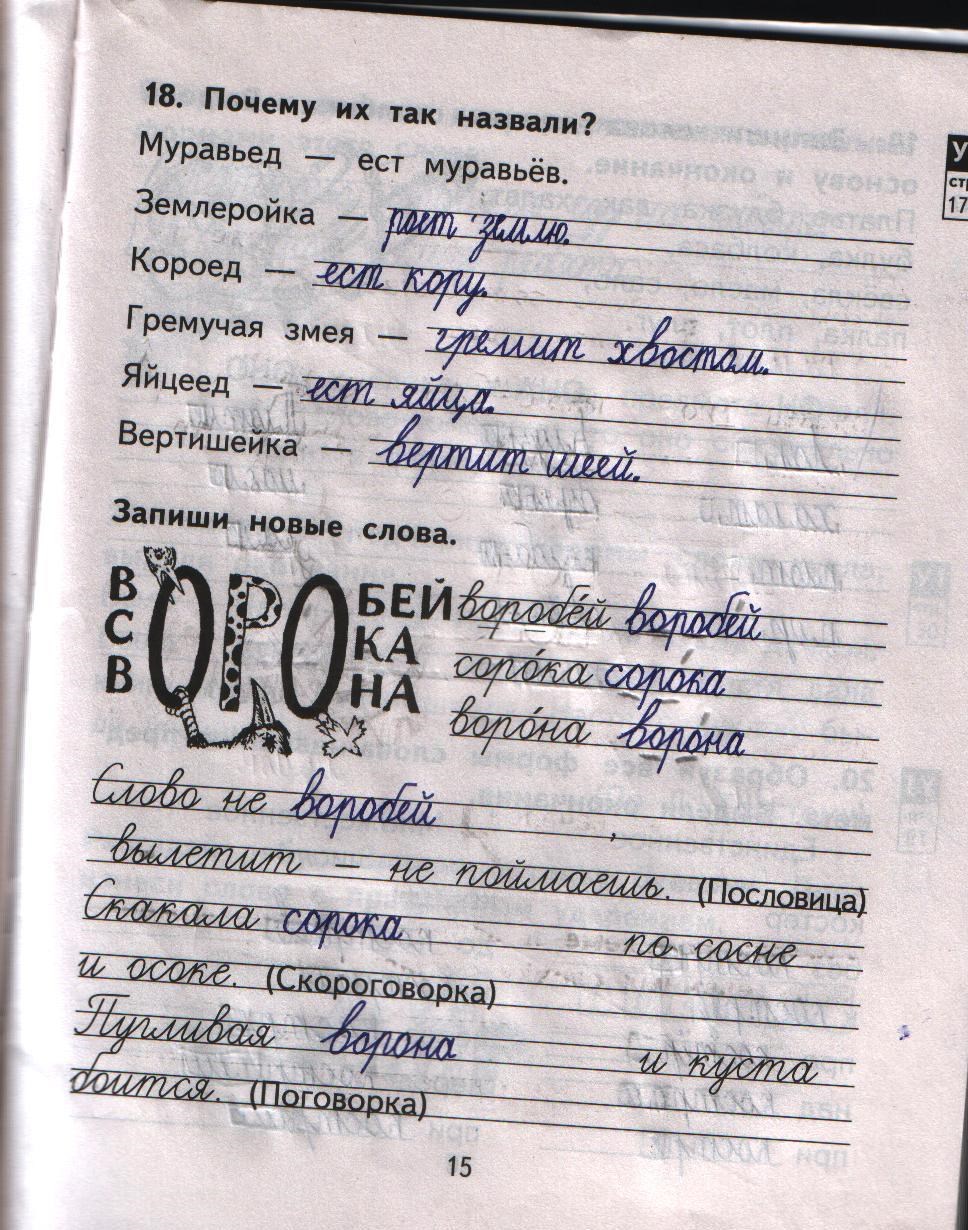 18. Почему их так назвали?
Муравьед — ест муравьёв.
Землеройка — роет землю.
Короед — ест кору.
Гремучая змея — гремит хвостом.
Яйцеед — ест яйца.
Вертишейка — вертит шеей.
Запиши новые слова.
В ОРО БЕЙ воробе́й воробе́й
С КА соро́ка соро́ка
В НА воро́на воро́на
Слово не воробей ,
вылетит — не поймаешь. (Пословица)
Скакала сорока по сосне
и осоке. (Скороговорка)
Пугливая ворона и куста
боится. (Поговорка)
15
У
стр
17